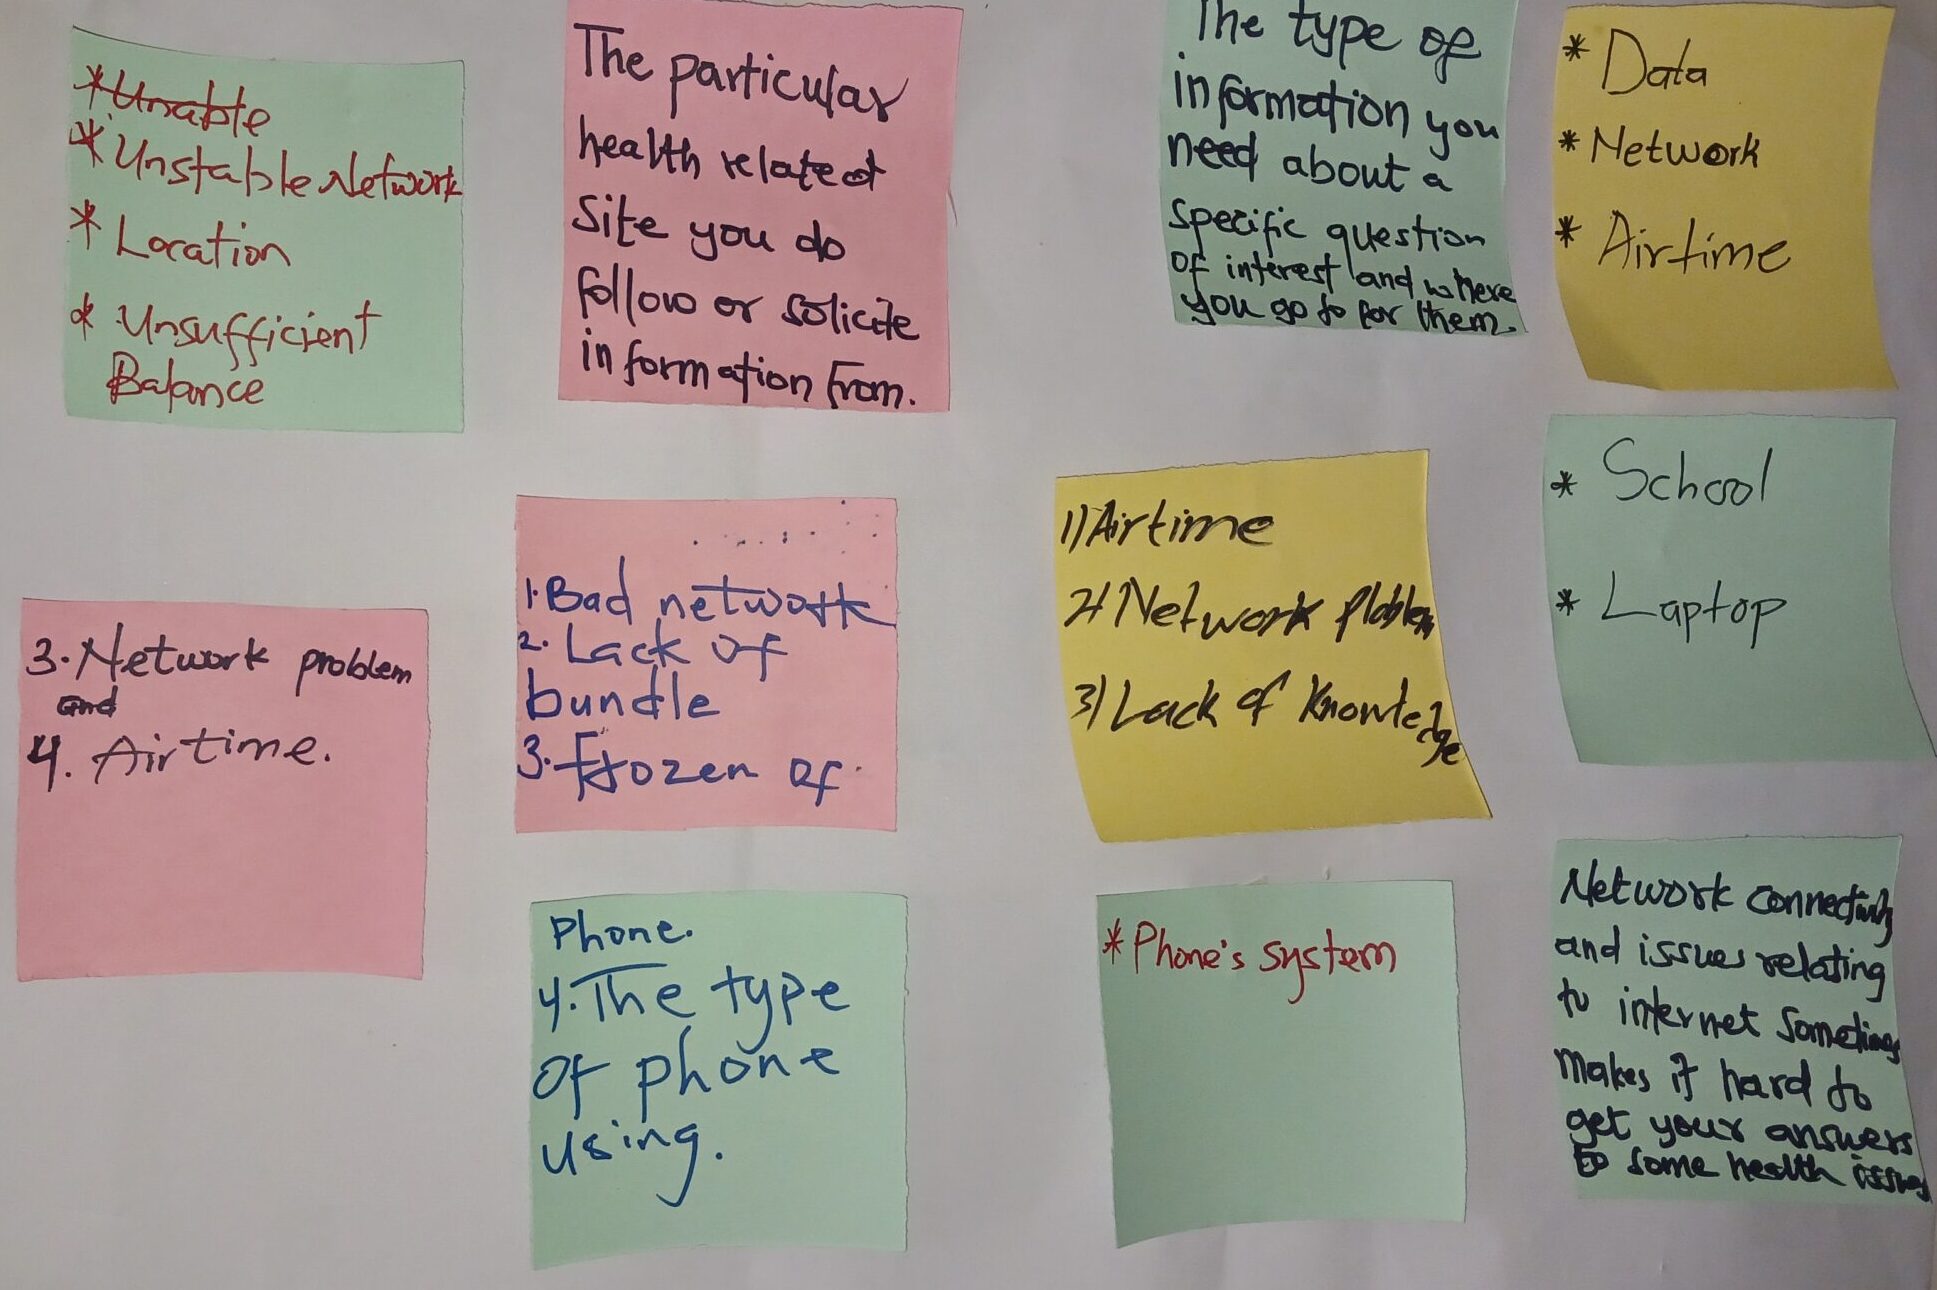 *Unable
*Unstable Network
* Location
* Unsufficient
Balance
The particular
health related
site you do
follow or solicite
information from.
The type of
information you
need about a
specific question
of interest and where
you go to for them.
* Data
* Network
* Airtime
3. Network problem
and
4. Airtime.
1. Bad network
2. Lack of
bundle
3. Frozen of
1) Airtime
2) Network ploblem
3) Lack of Knowledge
* School
* Laptop
Phone.
4. The type
of phone
using.
* Phone's system
Network connectivity
and issues relating
to internet sometimes
makes it hard to
get your answers
to some health issues